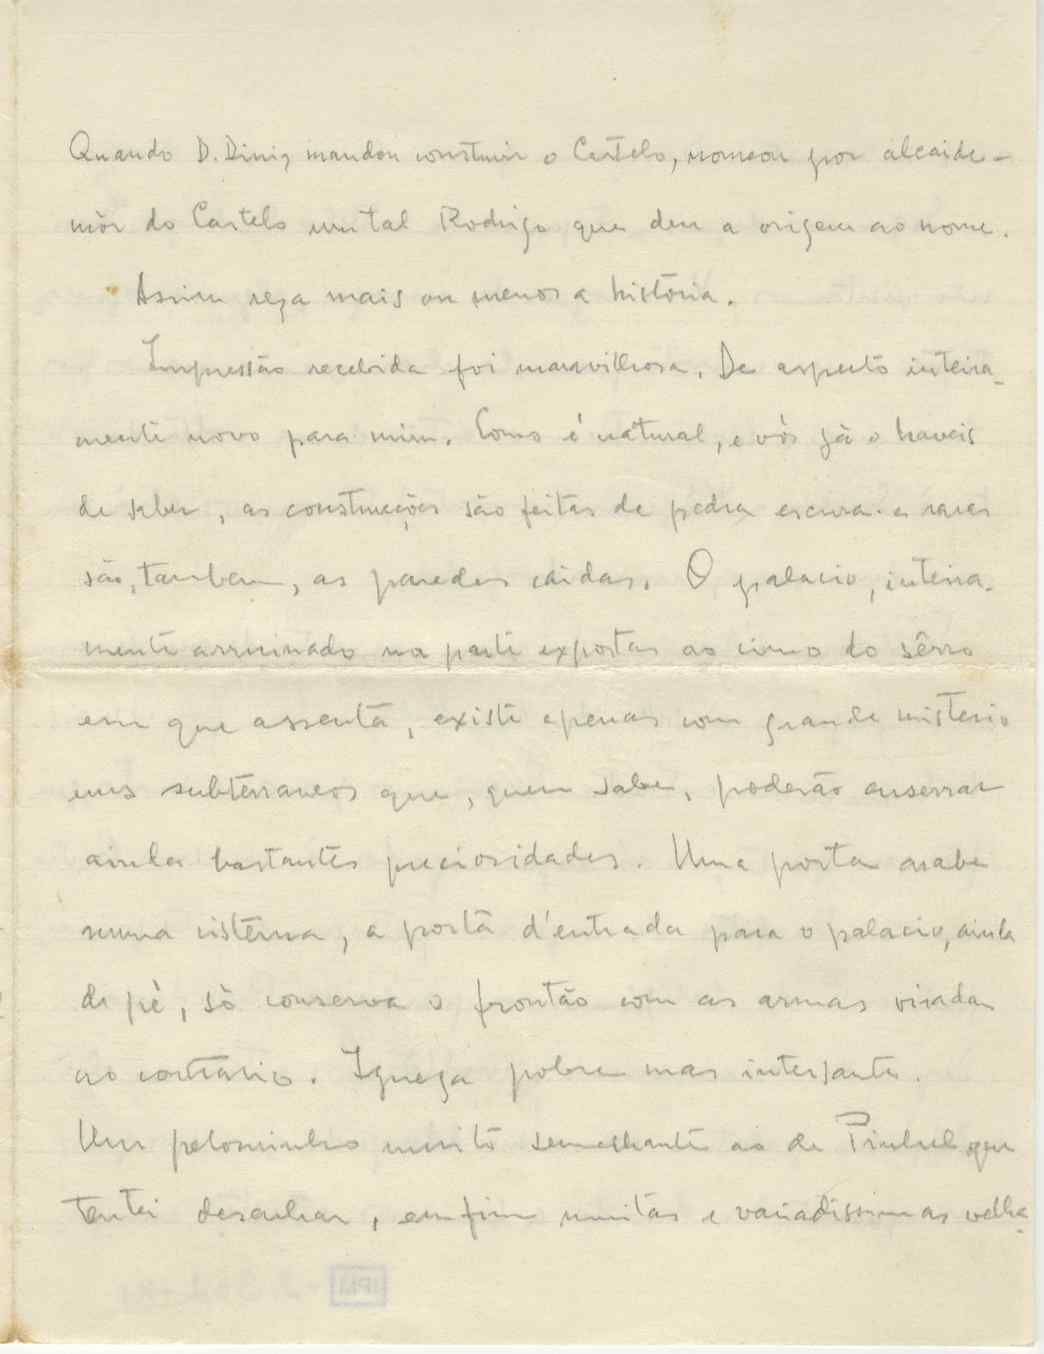 Quando D. Diniz mandou construir o Castelo, nomeou por alcaide-
mór do Castelo um tal Rodrigo que deu a origem ao nome.
Assim reza mais ou menos a história.
Impressão recebida foi maravilhosa. De aspecto inteira-
mente novo para mim. Como é natural, e vós já o haveis
de saber, as construções são feitas de pedra escura e raras
são, tambem, as paredes caidas. O palacio, inteira-
mente arruinado na parte expostas ao cimo do sêrro
em que assenta, existe apenas com grande misterio
uns subterraneos que, quem sabe, poderão enserrar
ainda bastantes preciosidades. Uma porta arabe
numa cisterna, a porta d'entrada para o palacio, ainda
de pé, só conserva o frontão com as armas viradas
ao contrario. Igreja pobre mas intersante.
Um pelourinho muito semelhante ao de Pinhel que
tentei desenhar, emfim muitas e variadissimas velha-